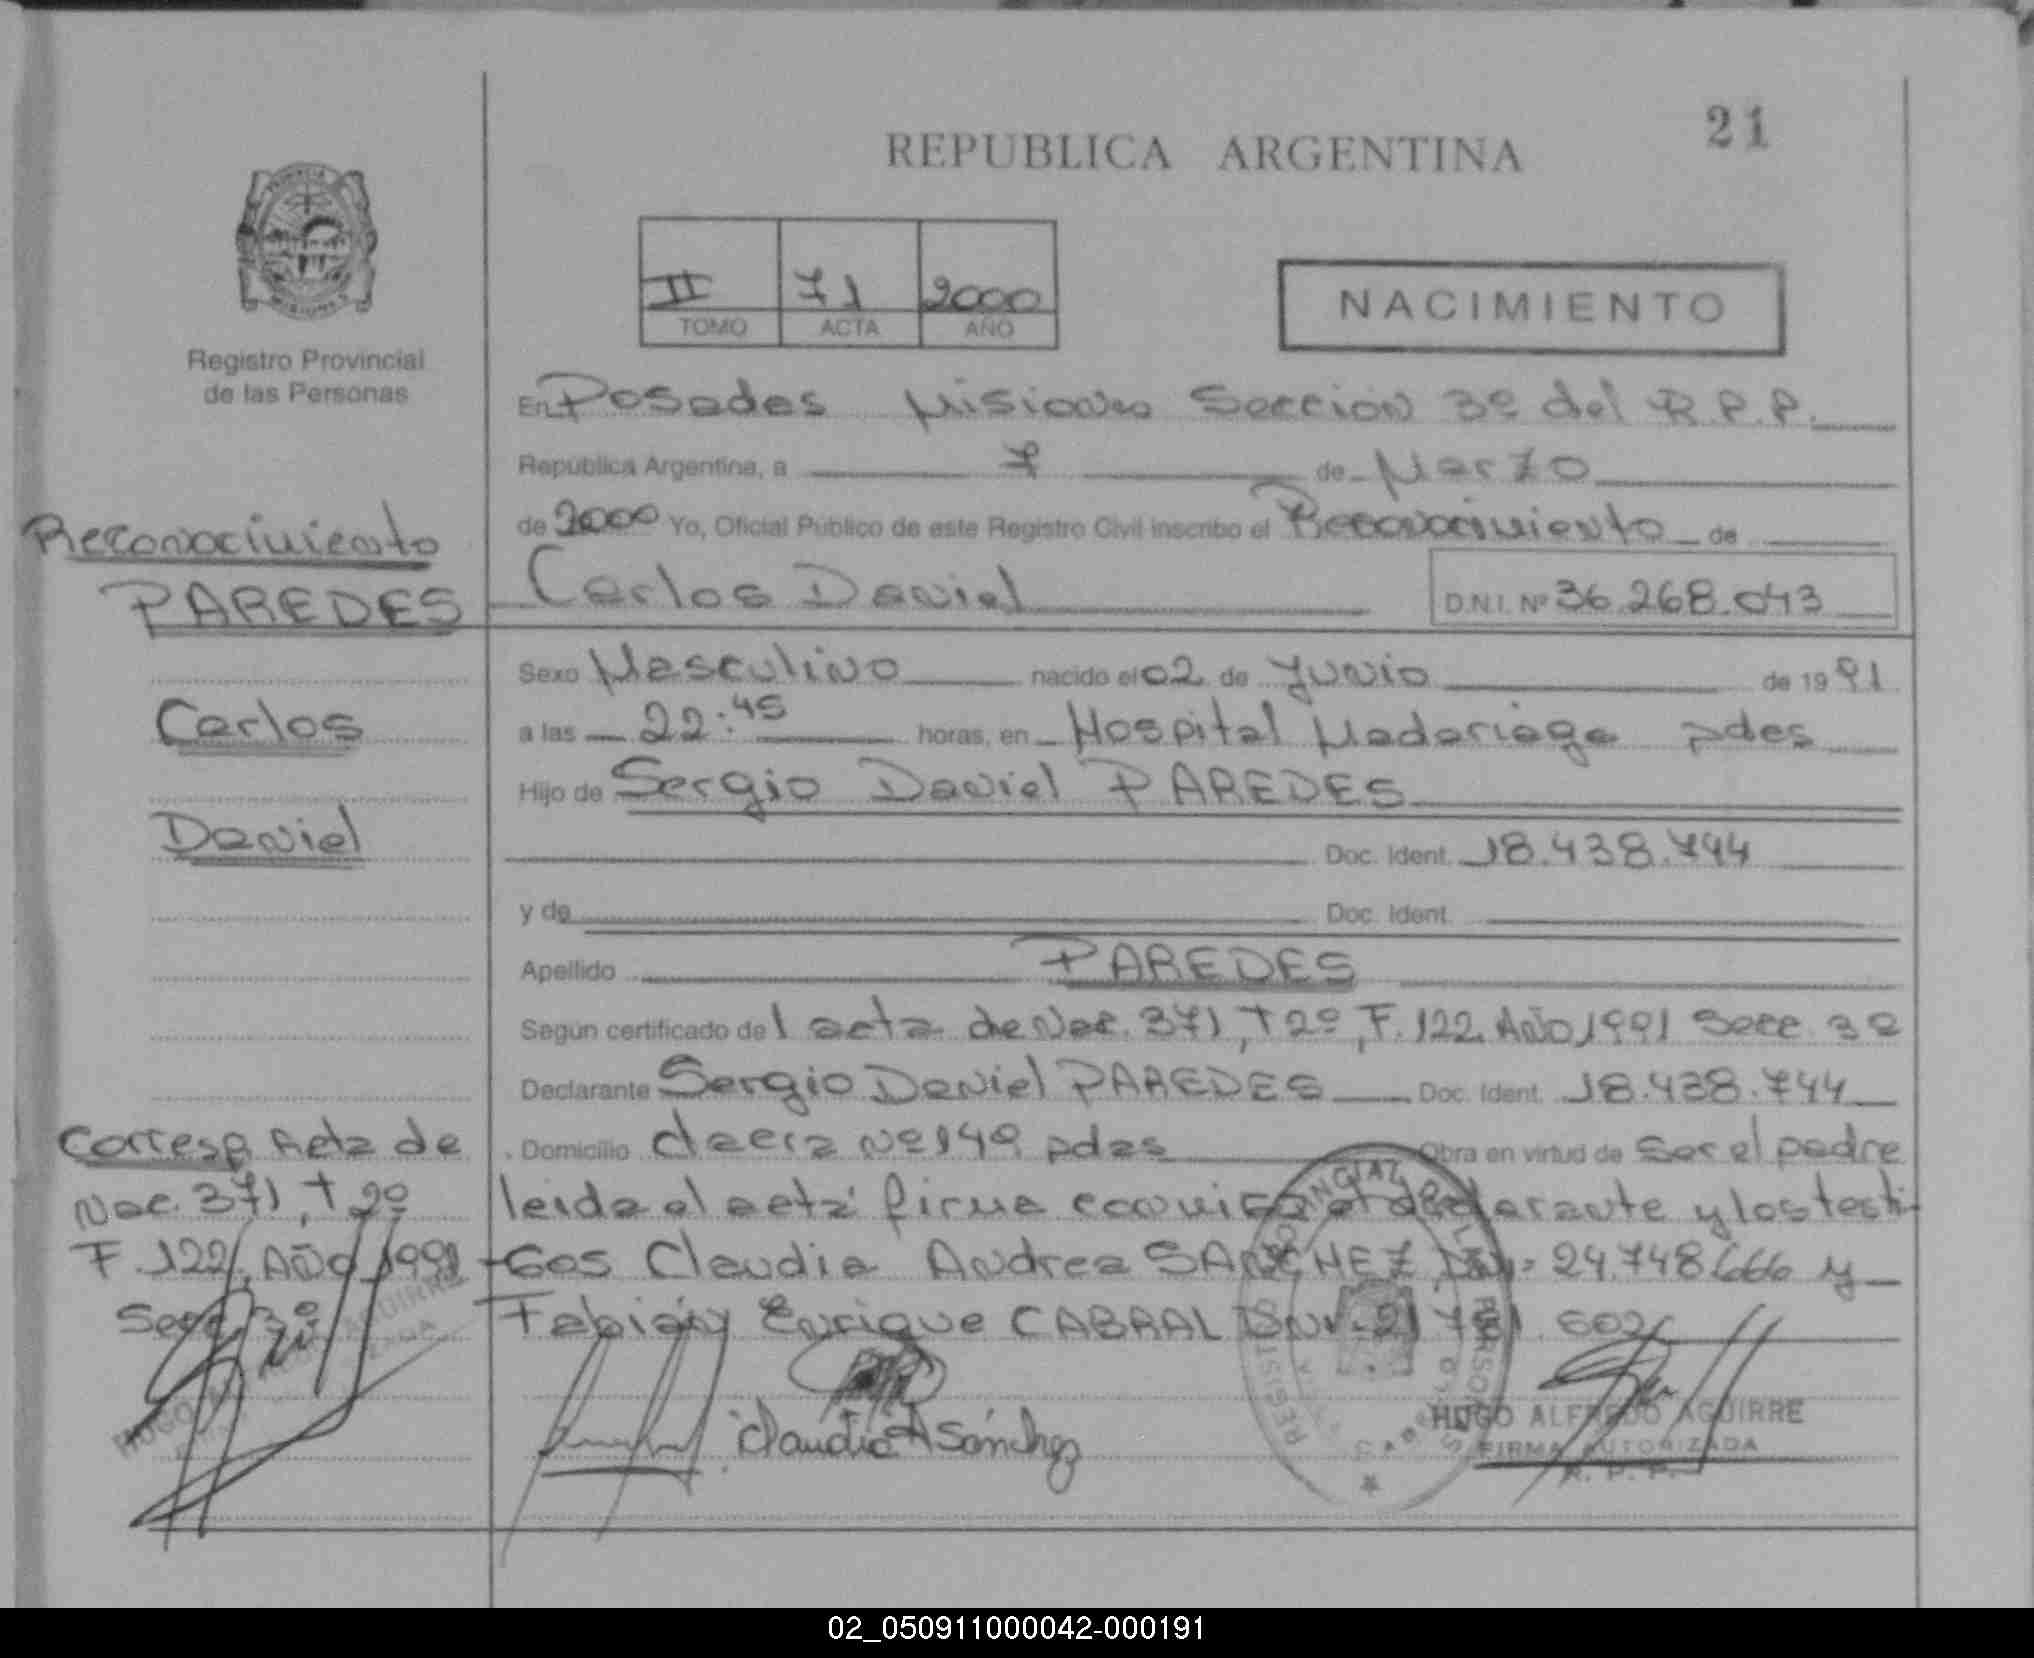 21
REPUBLICA ARGENTINA
II 71 2000
TOMO ACTA AÑO
NACIMIENTO
Registro Provincial
de las Personas
En Posadas Misiones Sección 3º del R.P.P.
República Argentina, a 7 de Marzo
de 2000 Yo, Oficial Público de este Registro Civil inscribo el Reconocimiento de
Carlos Daniel D.N.I. Nº 36.268.043
Sexo Masculino nacido el 02 de Junio de 19 91
a las 22:45 horas, en Hospital Madariaga pdas
Hijo de Sergio Daniel PAREDES
Doc. Ident. 18.438.744
y de Doc. Ident.
Apellido PAREDES
Según certificado del acta de Nac. 371, Tº 2º, F. 122. Año 1991 Secc. 3º
Declarante Sergio Daniel PAREDES Doc. Ident. 18.438.744
Domicilio Nº 149 pdas Obra en virtud de ser el padre
leida el acta firma conmigo el declarante y los testi-
gos Claudia Andrea SANCHEZ DNI. 24.748.666 y
Fabián Enrique CABRAL DNI. 602
Claudia A Sánchez
HUGO ALFREDO AGUIRRE
FIRMA AUTORIZADA
R. P. P.
Reconocimiento
PAREDES
Carlos
Daniel
Corresp. Acta de
Nac. 371, Tº 2º
F. 122, Año 1991
Secc. 3º
02_050911000042-000191